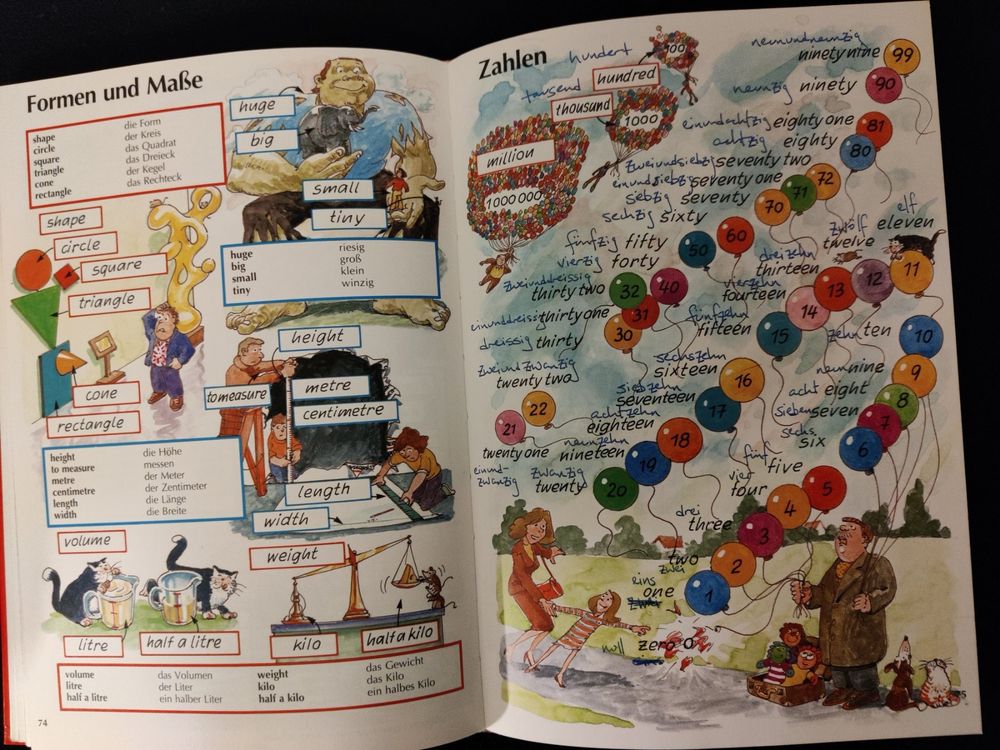 Formen und Maße
shape die Form
circle der Kreis
square das Quadrat
triangle das Dreieck
cone der Kegel
rectangle das Rechteck
huge
big
small
tiny
shape
circle
square
triangle
cone
rectangle
huge riesig
big groß
small klein
tiny winzig
height
to measure
metre
centimetre
length
width
height die Höhe
to measure messen
metre der Meter
centimetre der Zentimeter
length die Länge
width die Breite
volume
litre
half a litre
weight
kilo
half a kilo
volume das Volumen
litre der Liter
half a litre ein halber Liter
weight das Gewicht
kilo das Kilo
half a kilo ein halbes Kilo
74
Zahlen
hundert
hundred
100
tausend
thousand
1000
million
1000 000
neunundneunzig
ninety nine
99
neunzig ninety
90
einundachtzig eighty one
81
achtzig eighty
80
zweiundsiebzig seventy two
72
einundsiebzig seventy one
71
siebzig seventy
70
sechzig sixty
60
fünfzig fifty
50
vierzig forty
40
zweiunddreissig
thirty two
32
einunddreissig thirty one
31
dreissig thirty
30
zweiundzwanzig
twenty two
22
21
twenty one
einund-
zwanzig
zwanzig
twenty
20
neunzehn
nineteen
19
achtzehn
eighteen
18
siebzehn
seventeen
17
sechszehn
sixteen
16
fünfzehn
fifteen
15
vierzehn
fourteen
14
dreizehn
thirteen
13
zwölf
twelve
12
elf
eleven
11
zehn ten
10
neun nine
9
acht eight
8
sieben seven
7
sechs
six
6
fünf
five
5
vier
four
4
drei
three
3
two
zwei
2
eins
one
1
null zero 0